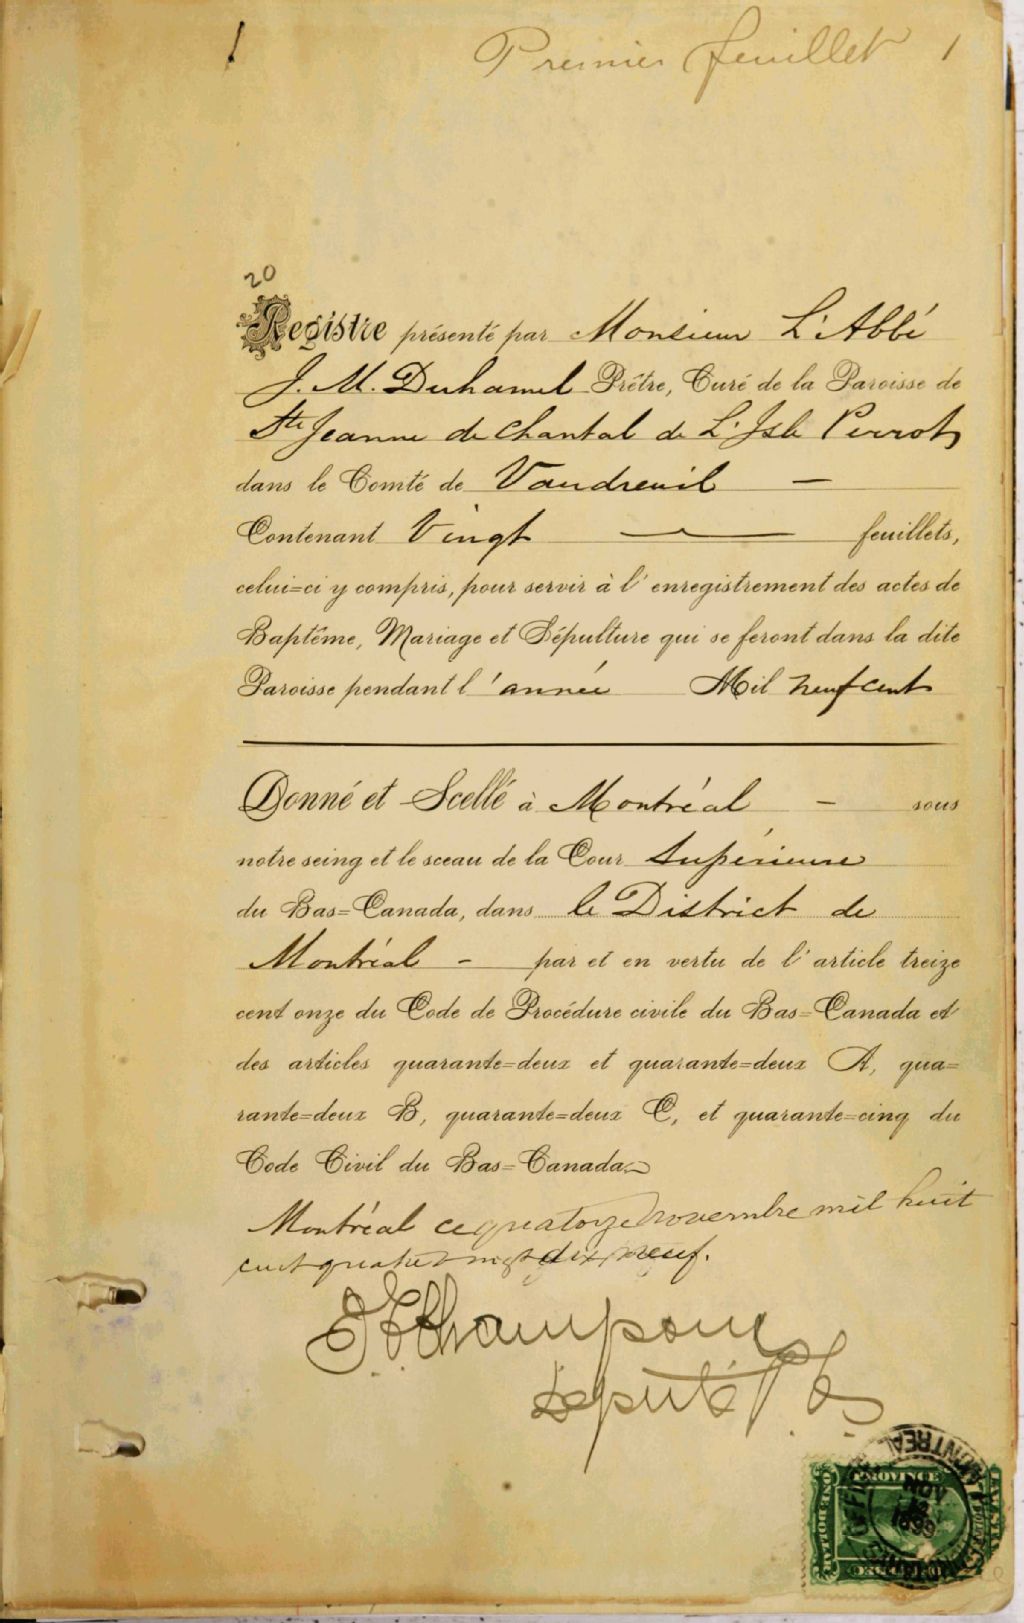 1
Premier feuillet 1
20
Registre présenté par Monsieur L'Abbé
J. M. Duhamel Prêtre, Curé de la Paroisse de
Ste Jeanne de Chantal de L'Isle Perrot
dans le Comté de Vaudreuil —
Contenant Vingt — feuillets,
celui=ci y compris, pour servir à l'enregistrement des actes de
Baptême, Mariage et Sépulture qui se feront dans la dite
Paroisse pendant l'année Mil neuf cent
Donné et Scellé à Montréal — sous
notre seing et le sceau de la Cour Supérieure
du Bas=Canada, dans le District de
Montréal — par et en vertu de l'article treize
cent onze du Code de Procédure civile du Bas=Canada et
des articles quarante=deux et quarante=deux A, qua=
rante=deux B, quarante=deux C, et quarante=cinq du
Code Civil du Bas=Canada.
Montréal ce quatorze novembre mil huit
cent quatre vingt dix neuf.
Député P.
MONTREAL
PROVINCE
NOV
1899